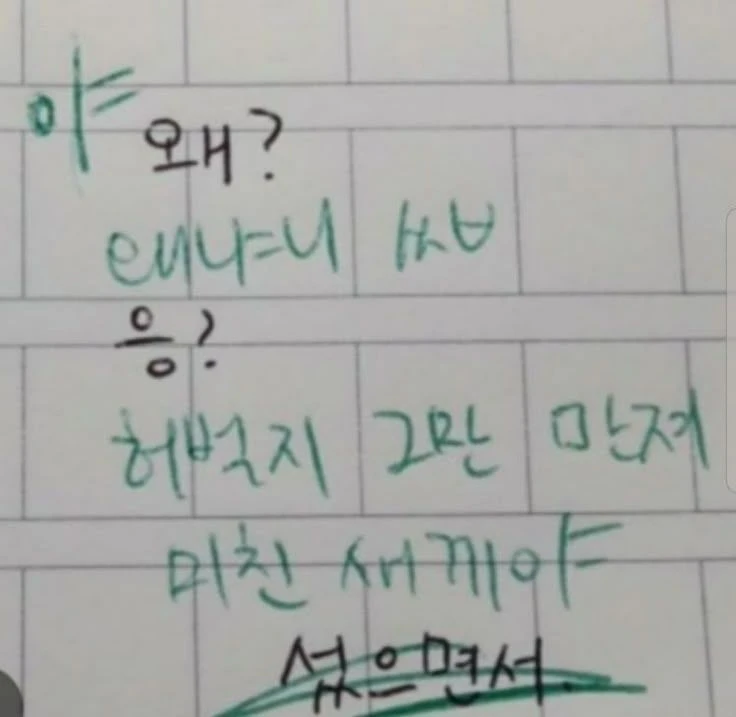 야 왜?
왜냐니 ㅆㅂ
응?
허벅지 그만 만져
미친 새끼야
섰으면서.